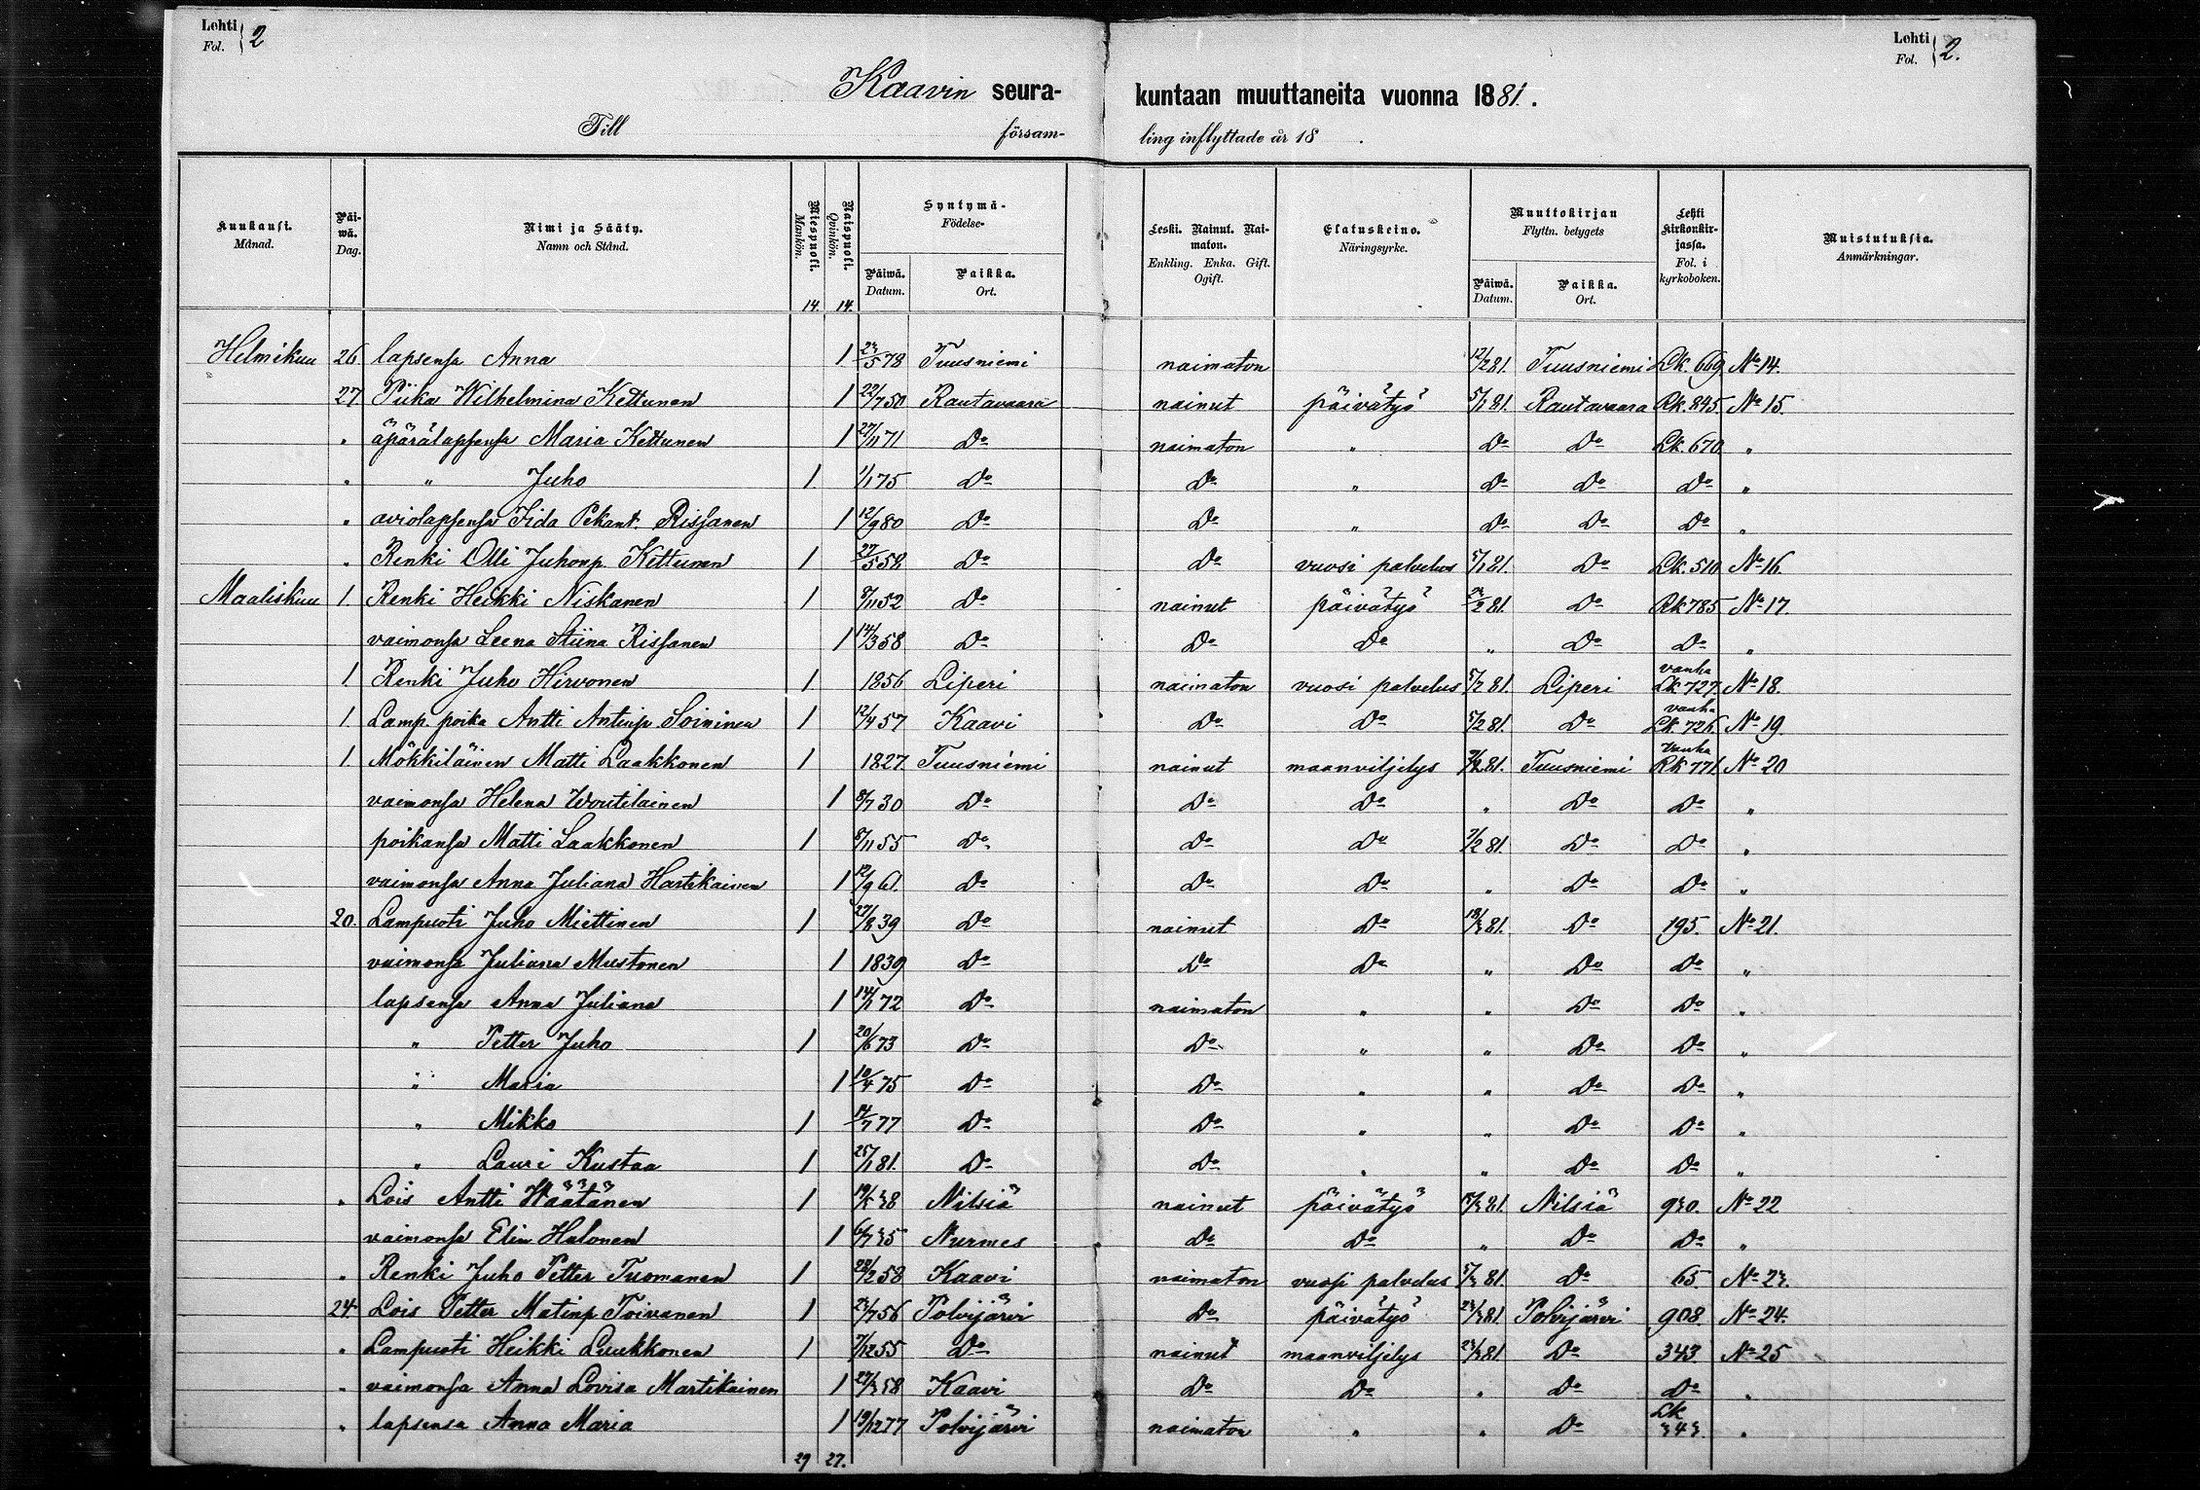 Lehti Fol. } 2
Lehti Fol. } 2.
Kaavin seurakuntaan muuttaneita vuonna 1881.
Till församling inflyttade år 18 .
Kuukausi. Månad. | Päiwä. Dag. | Nimi ja Sääty. Namn och Stånd. | Miespuoli. Mankön. | Naispuoli. Qvinkön. | Syntymä- Födelse- | Päiwä. Datum. | Paikka. Ort. | Leski. Nainut. Naimaton. Enkling. Enka. Gift. Ogift. | Elatuskeino. Näringsyrke. | Muuttokirjan Flyttn. betygets | Päiwä. Datum. | Paikka. Ort. | Lehti kirkonkirjassa. Fol. i kyrkoboken. | Muistutuksia. Anmärkningar.
14. 14.
Helmikuu 26 lapsensa Anna 1 23/5 78 Tuusniemi naimaton 12/2 81. Tuusniemi Lk. 669 No 14.
27 Piika Wilhelmina Kettunen 1 22/7 50 Rautavaara nainut päivätyö 5/1 81. Rautavaara Rk. 845 No 15.
" äpärälapsensa Maria Kettunen 1 27/11 71 Do naimaton " Do Do Lk. 670 "
" " Juho 1. 1/1 75 Do Do " Do Do Do "
" aviolapsensa Iida Pekant. Rissanen 1 12/9 80 Do Do " Do Do Do "
" Renki Olli Juhonp. Kettunen 1 27/5 58 Do Do vuosi palvelus 5/1 81. Do Lk. 510 No 16.
Maaliskuu 1. Renki Heikki Niskanen 1 8/11 52 Do nainut päivätyö 22/2 81. Do Rk 785 No 17.
vaimonsa Leena Stiina Rissanen 1 14/3 58 Do Do Do " Do Do "
1. Renki Juho Hirvonen 1 1856 Liperi naimaton vuosi palvelus 5/2 81. Liperi vanha Lk 727 No 18.
1. Lamp. poika Antti Antinp. Soininen 1 12/4 57 Kaavi Do Do 5/2 81. Do vanha Lk. 726 No 19.
1. Mökkiläinen Matti Laakkonen 1 1827 Tuusniemi nainut maanviljelys 7/2 81. Tuusniemi vanha Rk 771. No 20
vaimonsa Helena Woutilainen 1 8/7 30 Do Do Do " Do Do "
poikansa Matti Laakkonen 1 8/11 55 Do Do Do 7/2 81. Do Do "
vaimonsa Anna Juliana Hartikainen 1 12/9 61. Do Do Do " Do Do "
20. Lampuoti Juho Miettinen 1 27/8 39 Do nainut Do 18/3 81. Do 195. No 21.
vaimonsa Juliana Mustonen 1 1839 Do Do Do " Do Do "
lapsensa Anna Juliana 1 14/1 72 Do naimaton " " Do Do "
" Petter Juho 1 20/6 73 Do Do " " Do Do "
" Maria 1 10/4 75 Do Do " " Do Do "
" Mikko 1 14/7 77 Do Do " " Do Do "
" Lauri Kustaa 1 25/1 81. Do Do " " Do Do "
" Lois Antti Wäätänen 1 38 Nilsiä nainut päivätyö 81. Nilsiä 930. No 22
vaimonsa Elin Halonen 1 6/7 35 Nurmes Do Do " Do Do "
" Renki Juho Petter Tuomanen 1 28/2 58 Kaavi naimaton vuosi palvelus 5/3 81. Do 65. No 23.
24. Lois Petter Matinp Toivanen 1 23/7 56 Polvijärvi Do päivätyö 23/3 81. Polvijärvi 908. No 24.
" Lampuoti Heikki Luukkonen 1 7/12 55 Do nainut maanviljelys 23/3 81 Do 343. No 25
" vaimonsa Anna Lovisa Martikainen 1 27/3 58 Kaavi Do Do " Do Do "
" lapsensa Anna Maria 1 19/12 77 Polvijärvi naimaton " " Do Lk 343. "
29 27.